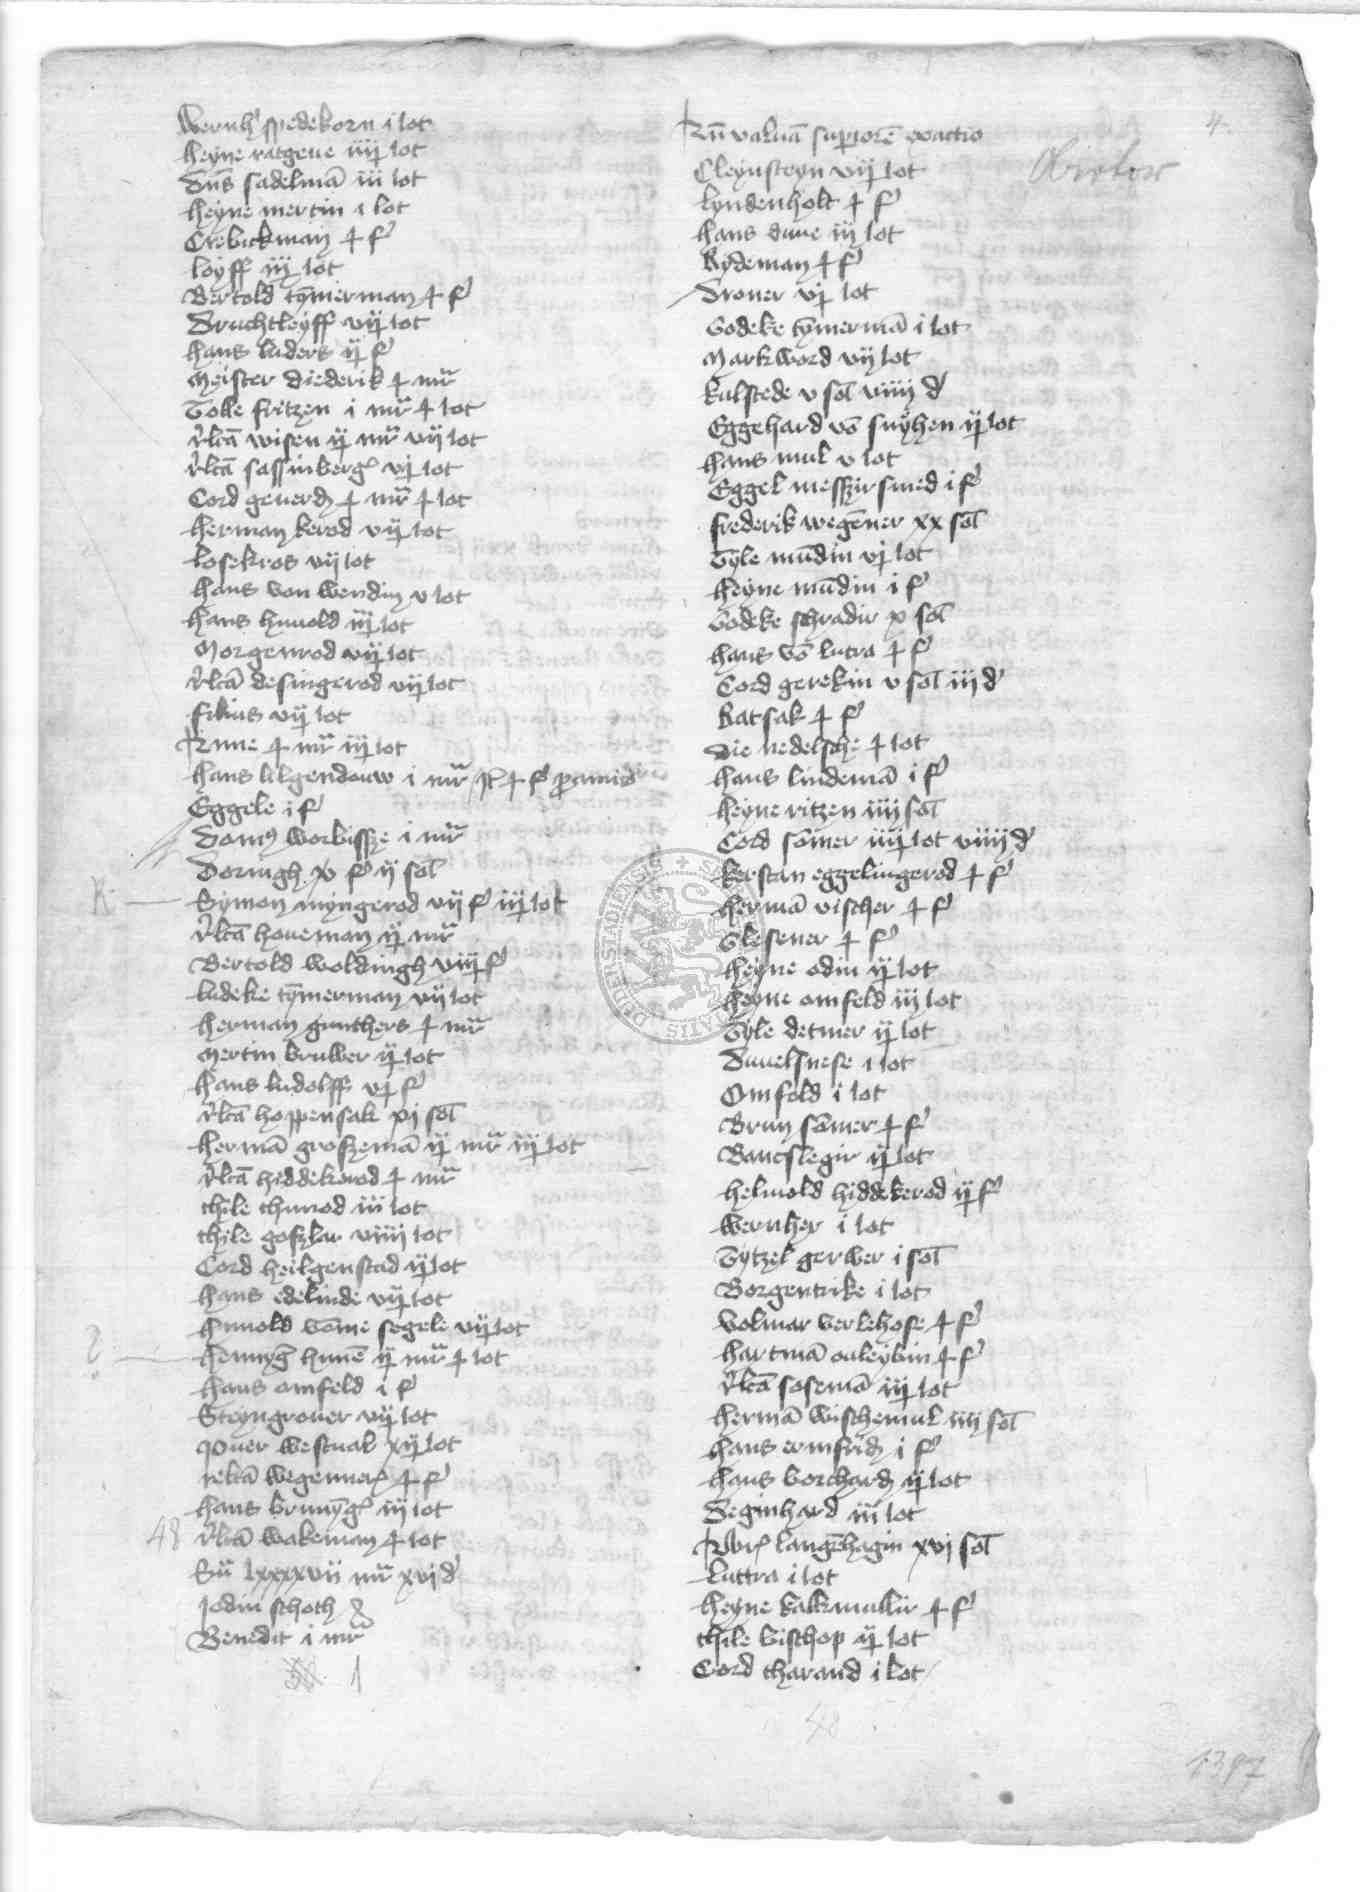 Wernh' spedekorn i lot
heyne ratgeue iiij lot
Dns sadelmā iii lot
heyne mertin i lot
Crebickman ɟ f'
loyff iij lot
Bertold tȳmerman ɟ f'
Druchtleyff vij lot
hans luders ij f'
Meister diederik ɟ mr
Tolle fritzen i mr ɟ lot
Rlcā wisen ij mr vij lot
Rlcā sassinberg vj lot
Cord geuerd ɟ mr ɟ lot
herman kerod vij lot
losekros vij lot
hans von wendin v lot
hans hunold iij lot
Morgenrod vij lot
Rlcā desingerod vij lot
filius vij lot
Anne ɟ mr iij lot
hans lilgendouw i mr ɟ f'
Eggele i f'
worbissze i mr
Doringh xv f' ij sol
Symon myngerod vij f' iij lot
Rlcā houeman ij mr
Bertold woldingh viij f'
ludeke tȳmerman vij lot
herman gunthers ɟ mr
Mertin bruwer ij lot
hans ludolff vj f'
Rlcā hoppensak xi sol
hermā groszemā ij mr iij lot
Rlcā hiddekerod ɟ mr
thile thunod iii lot
thile goszlar viiij lot
Cord heilgenstad ij lot
hans edelinde vij lot
hunold vōme segele vij lot
hennyg hunē ij mr ɟ lot
hans amfeld i f'
Steyngrouer vij lot
westual xij lot
relcā wegener ɟ f'
hans brunyg iij lot
48 Rlcā wakeman ɟ lot
Sū lxxxxvii mr xvi d'
Jodin schoth
Benedit i mr
1
4
An valuā superiorē exactio
Cleynsteyn vij lot
lyndenholt ɟ f'
hans duue iij lot
Rydeman ɟ f'
Droner vj lot
Godeke tȳmermā i lot
Markword vij lot
kulstede v sol viiij d'
Eggehard vō suyhen ij lot
hans mul v lot
Eggel messzirsmed i f'
frederik wegēner xx sol
Tyle mūdin vj lot
heyne mūdin i f'
Godeke schradir x sol
hans vō lutra ɟ f'
Cord gerekin v sol iij d'
Ratsak ɟ f'
die nedelsche ɟ lot
hans lindemā i f'
heyne ritzen iiij sol
Cord sōmer iiij lot viiij d'
kerstan eggelingerod ɟ f'
hermā vischer ɟ f'
Glesener ɟ f'
heyne odin ij lot
heyne amfeld iij lot
Tyle detmer ij lot
Duuelsnese i lot
Omfeld i lot
Brun sōmer ɟ f'
Bancslegir ij lot
helmold hiddekerod ij f'
wernher i lot
Tytzel gerwer i sol
Borgentrike i lot
volmar verlehose ɟ f'
hartmā ouleybin ɟ f'
Rlcā sosemā iij lot
hermā wischemul iiij sol
hans ermfrid i f'
hans borchard ij lot
Seginhard iii lot
langēhagin xvi sol
luttra i lot
heyne kalkmullir ɟ f'
thile bischop ij lot
Cord tharand i lot
48
1397